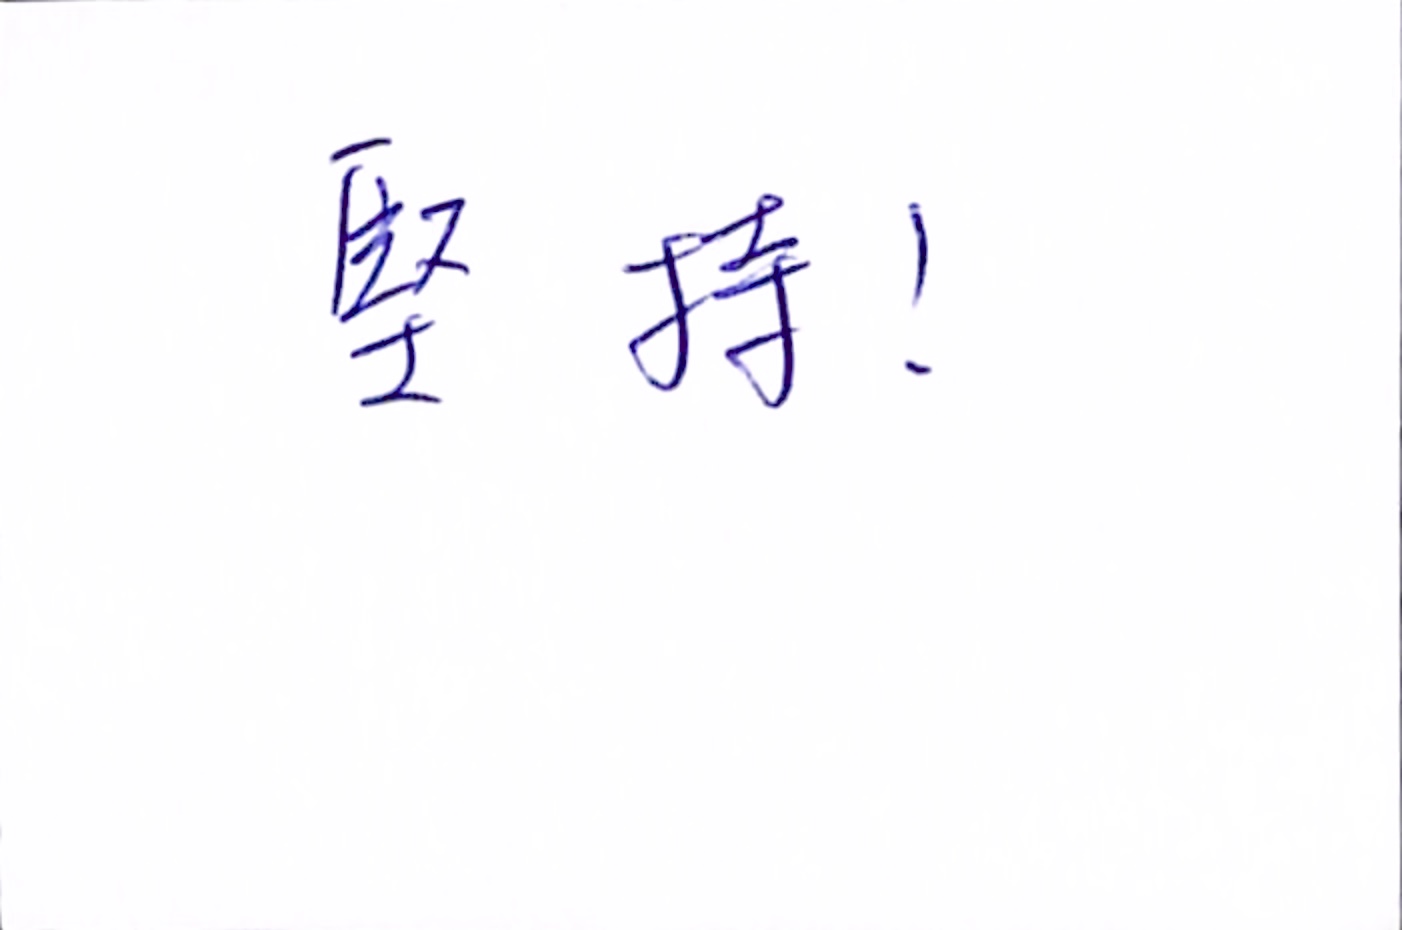 堅持!